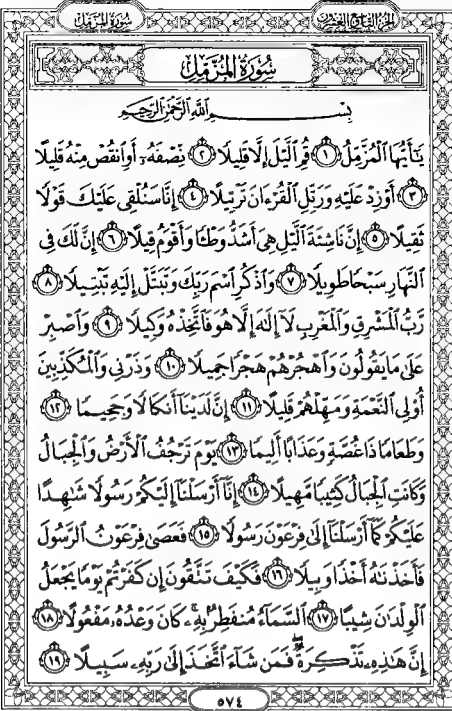 سُورَةُ المُزَّمِّل
الجُزءُ التَّاسِعُ وَالعِشرُونَ
سُورَةُ المُزَّمِّل
بِسْمِ ٱللَّهِ ٱلرَّحْمَٰنِ ٱلرَّحِيمِ
يَٰٓأَيُّهَا ٱلْمُزَّمِّلُ ١ قُمِ ٱلَّيْلَ إِلَّا قَلِيلًا ٢ نِّصْفَهُۥٓ أَوِ ٱنقُصْ مِنْهُ قَلِيلًا
٣ أَوْ زِدْ عَلَيْهِ وَرَتِّلِ ٱلْقُرْءَانَ تَرْتِيلًا ٤ إِنَّا سَنُلْقِى عَلَيْكَ قَوْلًا
ثَقِيلًا ٥ إِنَّ نَاشِئَةَ ٱلَّيْلِ هِىَ أَشَدُّ وَطْـًٔا وَأَقْوَمُ قِيلًا ٦ إِنَّ لَكَ فِى
ٱلنَّهَارِ سَبْحًا طَوِيلًا ٧ وَٱذْكُرِ ٱسْمَ رَبِّكَ وَتَبَتَّلْ إِلَيْهِ تَبْتِيلًا ٨
رَّبُّ ٱلْمَشْرِقِ وَٱلْمَغْرِبِ لَآ إِلَٰهَ إِلَّا هُوَ فَٱتَّخِذْهُ وَكِيلًا ٩ وَٱصْبِرْ
عَلَىٰ مَا يَقُولُونَ وَٱهْجُرْهُمْ هَجْرًا جَمِيلًا ١٠ وَذَرْنِى وَٱلْمُكَذِّبِينَ
أُو۟لِى ٱلنَّعْمَةِ وَمَهِّلْهُمْ قَلِيلًا ١١ إِنَّ لَدَيْنَآ أَنكَالًا وَجَحِيمًا ١٢
وَطَعَامًا ذَا غُصَّةٍ وَعَذَابًا أَلِيمًا ١٣ يَوْمَ تَرْجُفُ ٱلْأَرْضُ وَٱلْجِبَالُ
وَكَانَتِ ٱلْجِبَالُ كَثِيبًا مَّهِيلًا ١٤ إِنَّآ أَرْسَلْنَآ إِلَيْكُمْ رَسُولًا شَٰهِدًا
عَلَيْكُمْ كَمَآ أَرْسَلْنَآ إِلَىٰ فِرْعَوْنَ رَسُولًا ١٥ فَعَصَىٰ فِرْعَوْنُ ٱلرَّسُولَ
فَأَخَذْنَٰهُ أَخْذًا وَبِيلًا ١٦ فَكَيْفَ تَتَّقُونَ إِن كَفَرْتُمْ يَوْمًا يَجْعَلُ
ٱلْوِلْدَٰنَ شِيبًا ١٧ ٱلسَّمَآءُ مُنفَطِرٌۢ بِهِۦ ۚ كَانَ وَعْدُهُۥ مَفْعُولًا ١٨
إِنَّ هَٰذِهِۦ تَذْكِرَةٌ ۖ فَمَن شَآءَ ٱتَّخَذَ إِلَىٰ رَبِّهِۦ سَبِيلًا ١٩
٥٧٤